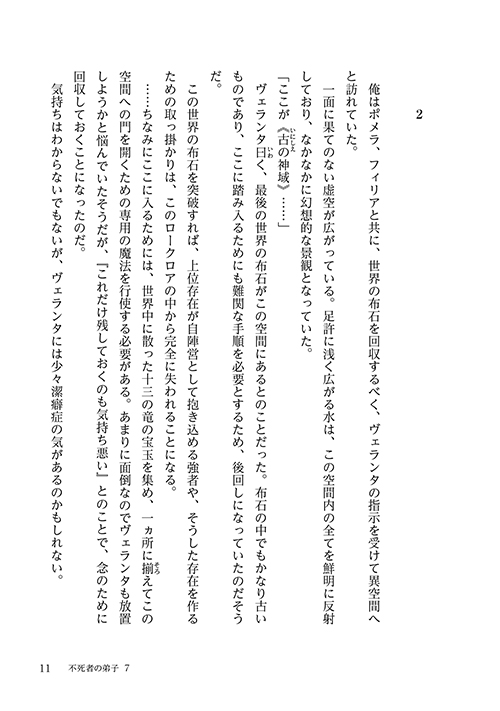 2
俺はポメラ、フィリアと共に、世界の布石を回収するべく、ヴェランタの指示を受けて異空間へ
と訪れていた。
一面に果てのない虚空が広がっている。足許に浅く広がる水は、この空間内の全てを鮮明に反射
しており、なかなかに幻想的な景観となっていた。
「ここが《古の神域》……」
ヴェランタ曰く、最後の世界の布石がこの空間にあるとのことだった。布石の中でもかなり古い
ものであり、ここに踏み入るためにも難関な手順を必要とするため、後回しになっていたのだそう
だ。
この世界の布石を突破すれば、上位存在が自陣営として抱き込める強者や、そうした存在を作る
ための取っ掛かりは、このロークロアの中から完全に失われることになる。
……ちなみにここに入るためには、世界中に散った十三の竜の宝玉を集め、一ヵ所に揃えてこの
空間への門を開くための専用の魔法を行使する必要がある。あまりに面倒なのでヴェランタも放置
しようかと悩んでいたそうだが、『これだけ残しておくのも気持ち悪い』とのことで、念のために
回収しておくことになったのだ。
気持ちはわからないでもないが、ヴェランタには少々潔癖症の気があるのかもしれない。
11 不死者の弟子 7